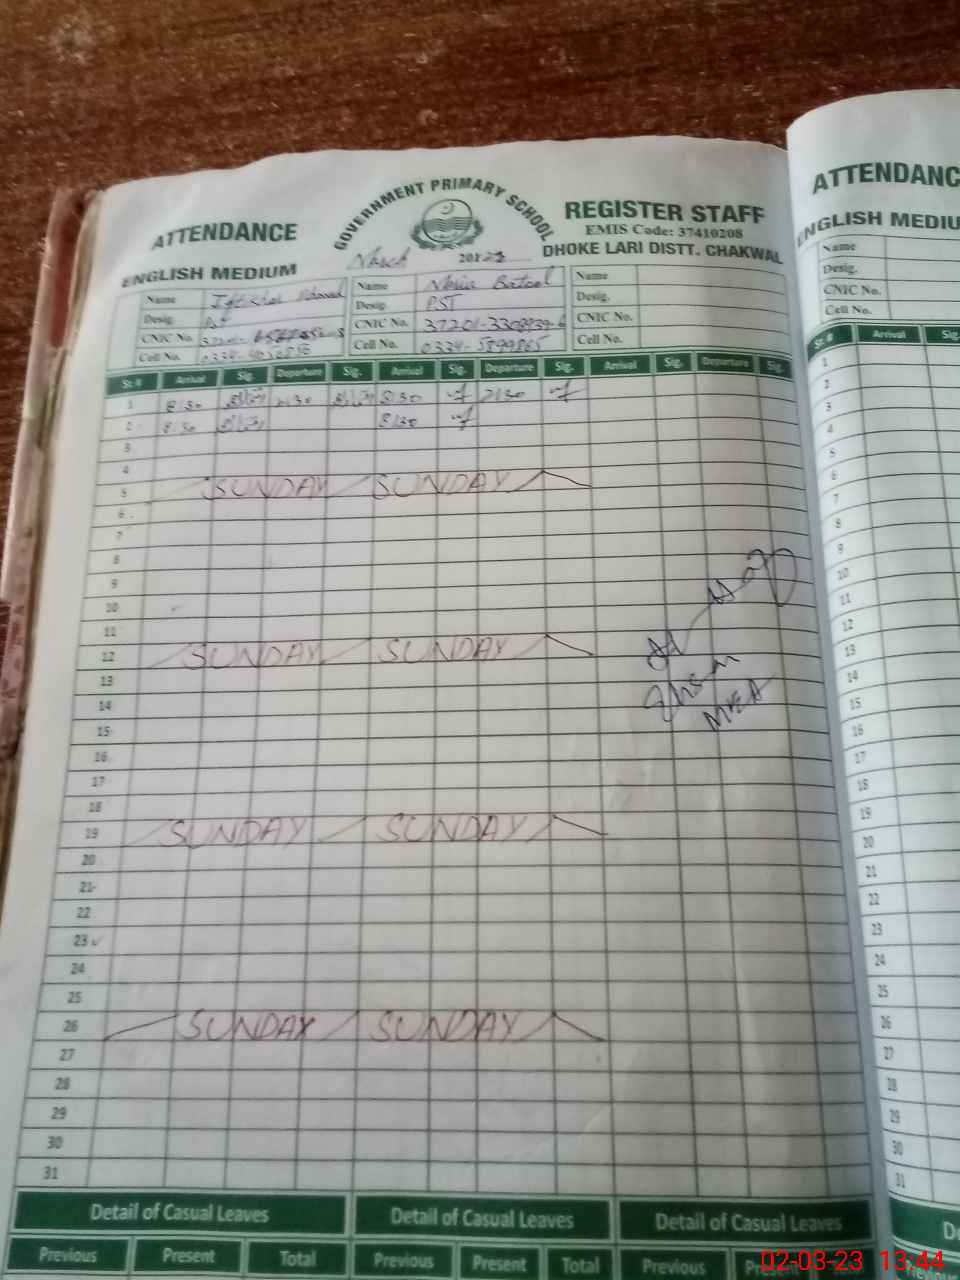 GOVERNMENT PRIMARY SCHOOL
ATTENDANCE REGISTER STAFF
EMIS Code: 37410208
ENGLISH MEDIUM DHOKE LARI DISTT. CHAKWAL
March 2023
Name Name Batool Name
Desig. Desig. PST Desig.
CNIC No. CNIC No. CNIC No.
Cell No. Cell No. Cell No.
Sr. # Arrival Sig. Departure Sig. Arrival Sig. Departure Sig. Arrival Sig. Departure Sig.
1 8:30 2:30 8:30 2:30
2 8:30 8:30
3
4
5 SUNDAY SUNDAY
6
7
8
9
10
11
12 SUNDAY SUNDAY
13
14
15
16
17
18
19 SUNDAY SUNDAY
20
21
22
23
24
25
26 SUNDAY SUNDAY
27
28
29
30
31
Ehsan
MEA
Detail of Casual Leaves Detail of Casual Leaves Detail of Casual Leaves
Previous Present Total Previous Present Total Previous Present
ATTENDANC
ENGLISH MEDIU
Name
Desig.
CNIC No.
Cell No.
Sr. # Arrival Sig.
1
2
3
4
5
6
7
8
9
10
11
12
13
14
15
16
17
18
19
20
21
22
23
24
25
26
27
28
29
30
31
02-03-23 13:44